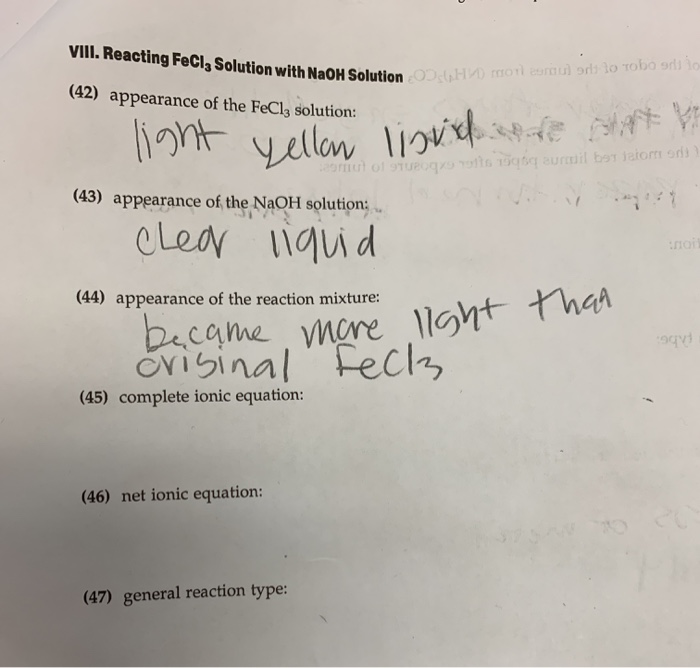 VIII. Reacting FeCl₃ Solution with NaOH Solution
(42) appearance of the FeCl₃ solution:
light yellow liquid
(43) appearance of the NaOH solution:
clear liquid
(44) appearance of the reaction mixture:
became more light than
original FeCl3
(45) complete ionic equation:
(46) net ionic equation:
(47) general reaction type: